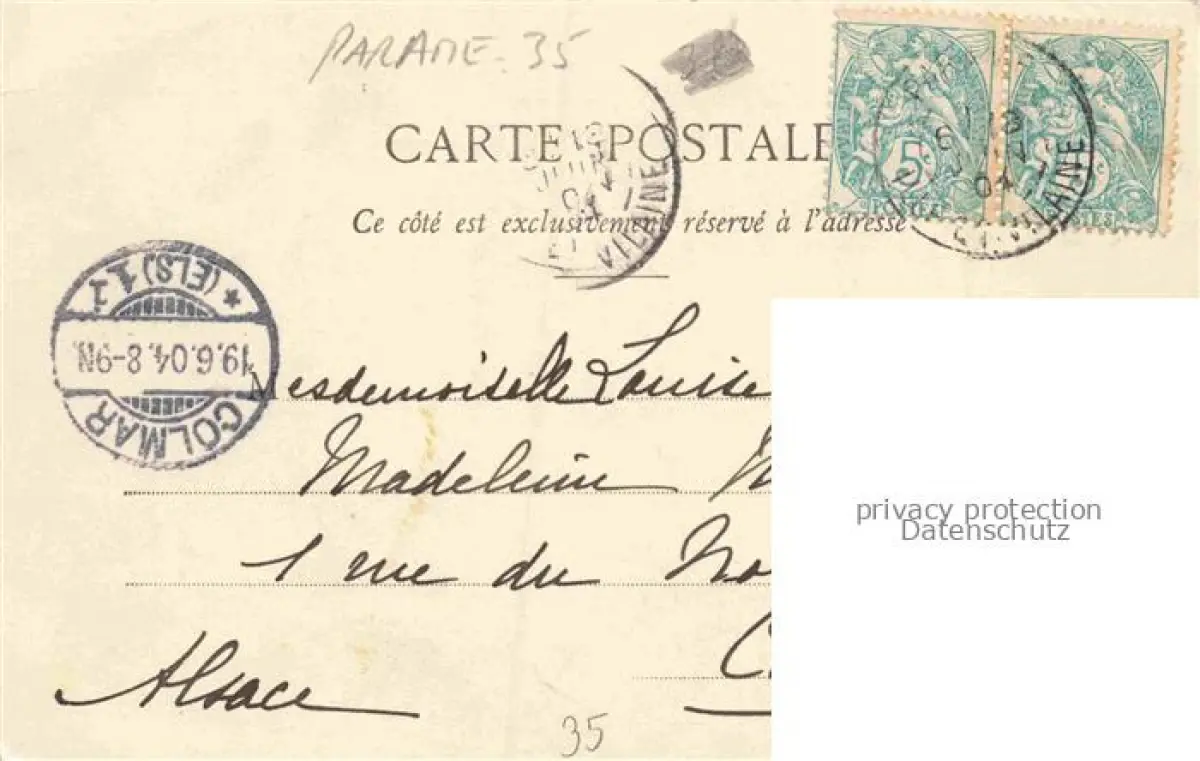 PARAME - 35
CARTE POSTALE
Ce côté est exclusivement réservé à l'adresse
VILAINE
ET-VILAINE
5c
COLMAR
19.6.04. 8-9N.
* (ELS) 1 1
Mesdemoiselle Louise
Madeleine
1 rue du
Alsace
35
privacy protection
Datenschutz